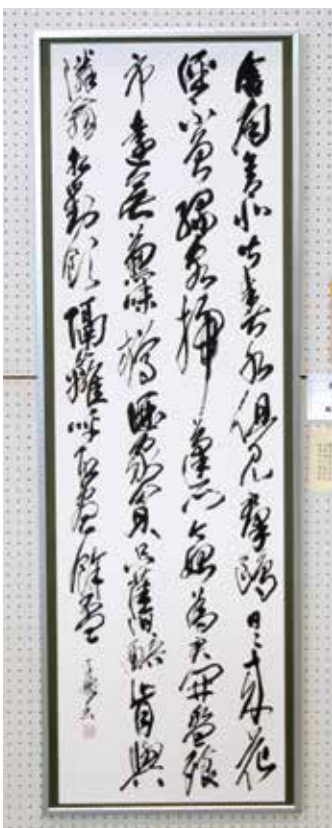 舍南舍北皆春水但見群鷗日々来花
徑不曾緣客掃蓬門今始為君開盤飧
市遠無兼味樽酒家貧只舊醅肯與
隣翁相對飲隔籬呼取盡餘盃